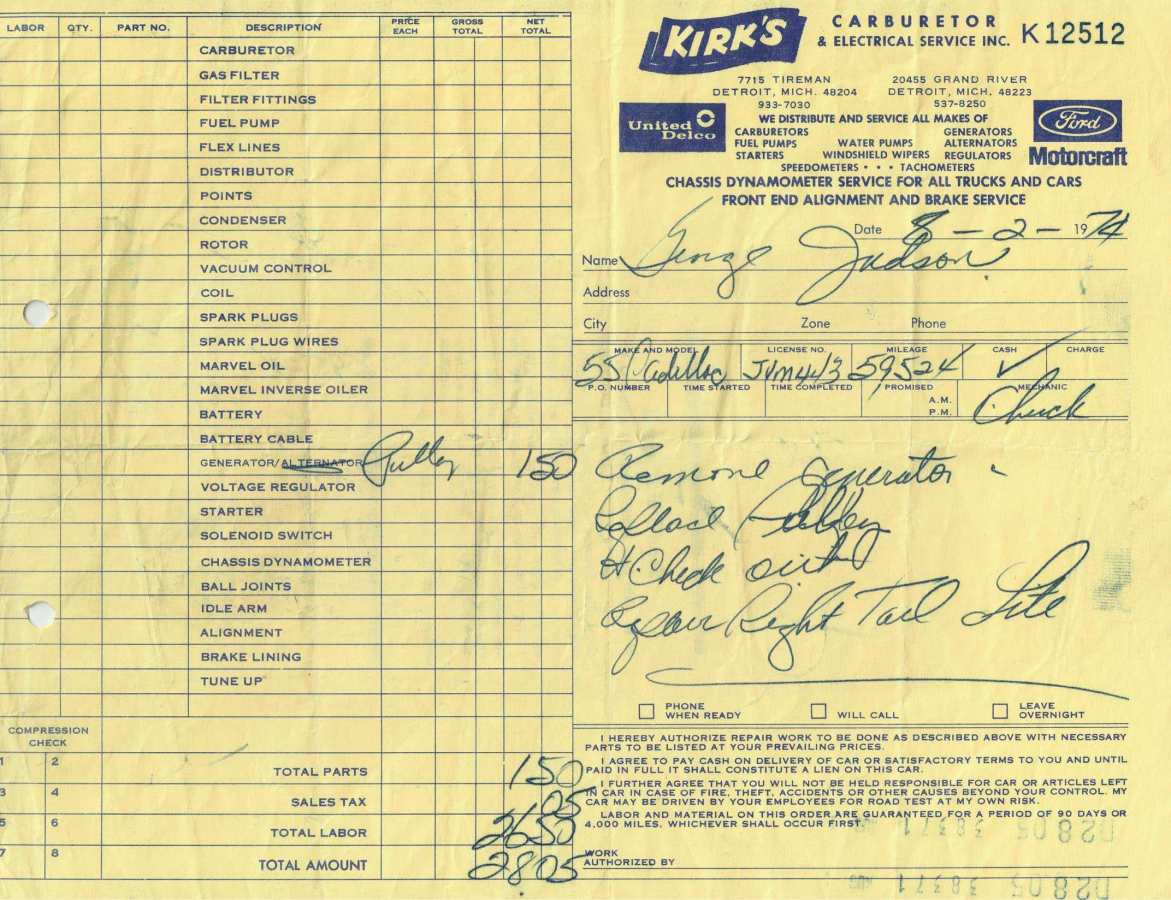 LABOR QTY. PART NO. DESCRIPTION PRICE EACH GROSS TOTAL NET TOTAL
CARBURETOR
GAS FILTER
FILTER FITTINGS
FUEL PUMP
FLEX LINES
DISTRIBUTOR
POINTS
CONDENSER
ROTOR
VACUUM CONTROL
COIL
SPARK PLUGS
SPARK PLUG WIRES
MARVEL OIL
MARVEL INVERSE OILER
BATTERY
BATTERY CABLE
GENERATOR/ALTERNATOR Pulley 150
VOLTAGE REGULATOR
STARTER
SOLENOID SWITCH
CHASSIS DYNAMOMETER
BALL JOINTS
IDLE ARM
ALIGNMENT
BRAKE LINING
TUNE UP
COMPRESSION CHECK
1 2
3 4
5 6
7 8
TOTAL PARTS 150
SALES TAX 05
TOTAL LABOR 2650
TOTAL AMOUNT 2805
KIRK'S CARBURETOR
& ELECTRICAL SERVICE INC. K 12512
7715 TIREMAN 20455 GRAND RIVER
DETROIT, MICH. 48204 DETROIT, MICH. 48223
933-7030 537-8250
United Delco
WE DISTRIBUTE AND SERVICE ALL MAKES OF
CARBURETORS GENERATORS
FUEL PUMPS WATER PUMPS ALTERNATORS
STARTERS WINDSHIELD WIPERS REGULATORS
SPEEDOMETERS • • • TACHOMETERS
Ford
Motorcraft
CHASSIS DYNAMOMETER SERVICE FOR ALL TRUCKS AND CARS
FRONT END ALIGNMENT AND BRAKE SERVICE
Date 8-2-1974
Name George Judson
Address
City Zone Phone
MAKE AND MODEL LICENSE NO. MILEAGE CASH CHARGE
55 Cadillac JVM443 59524 ✓
P.O. NUMBER TIME STARTED TIME COMPLETED PROMISED MECHANIC
A.M.
P.M.
Chuck
Remove generator
Replace Pulley
& Check out
Repair Right Tail Lite
PHONE WHEN READY WILL CALL LEAVE OVERNIGHT
I HEREBY AUTHORIZE REPAIR WORK TO BE DONE AS DESCRIBED ABOVE WITH NECESSARY
PARTS TO BE LISTED AT YOUR PREVAILING PRICES.
I AGREE TO PAY CASH ON DELIVERY OF CAR OR SATISFACTORY TERMS TO YOU AND UNTIL
PAID IN FULL IT SHALL CONSTITUTE A LIEN ON THIS CAR.
I FURTHER AGREE THAT YOU WILL NOT BE HELD RESPONSIBLE FOR CAR OR ARTICLES LEFT
IN CAR IN CASE OF FIRE, THEFT, ACCIDENTS OR OTHER CAUSES BEYOND YOUR CONTROL. MY
CAR MAY BE DRIVEN BY YOUR EMPLOYEES FOR ROAD TEST AT MY OWN RISK.
LABOR AND MATERIAL ON THIS ORDER ARE GUARANTEED FOR A PERIOD OF 90 DAYS OR
4,000 MILES, WHICHEVER SHALL OCCUR FIRST.
WORK
AUTHORIZED BY